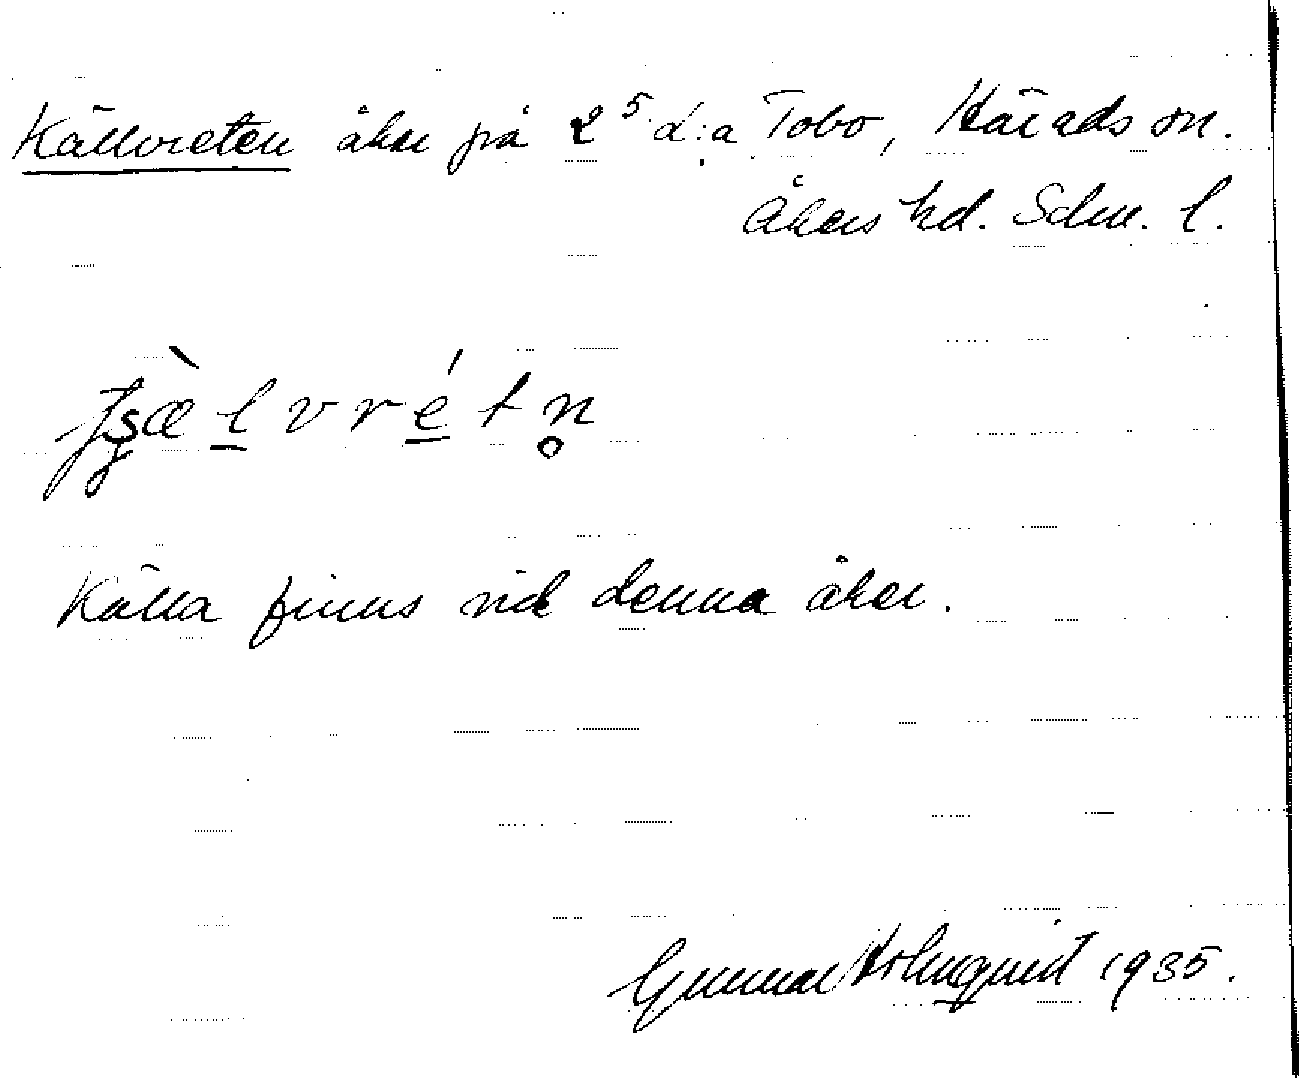 Källvreten åker på 2⁵ d:a Tobo, Härads sn.
Åkers hd. Sdm. l.
æ̀ l v r é t n̥
Källa finns vid denna åker.
Gunnar Holmquist 1935.